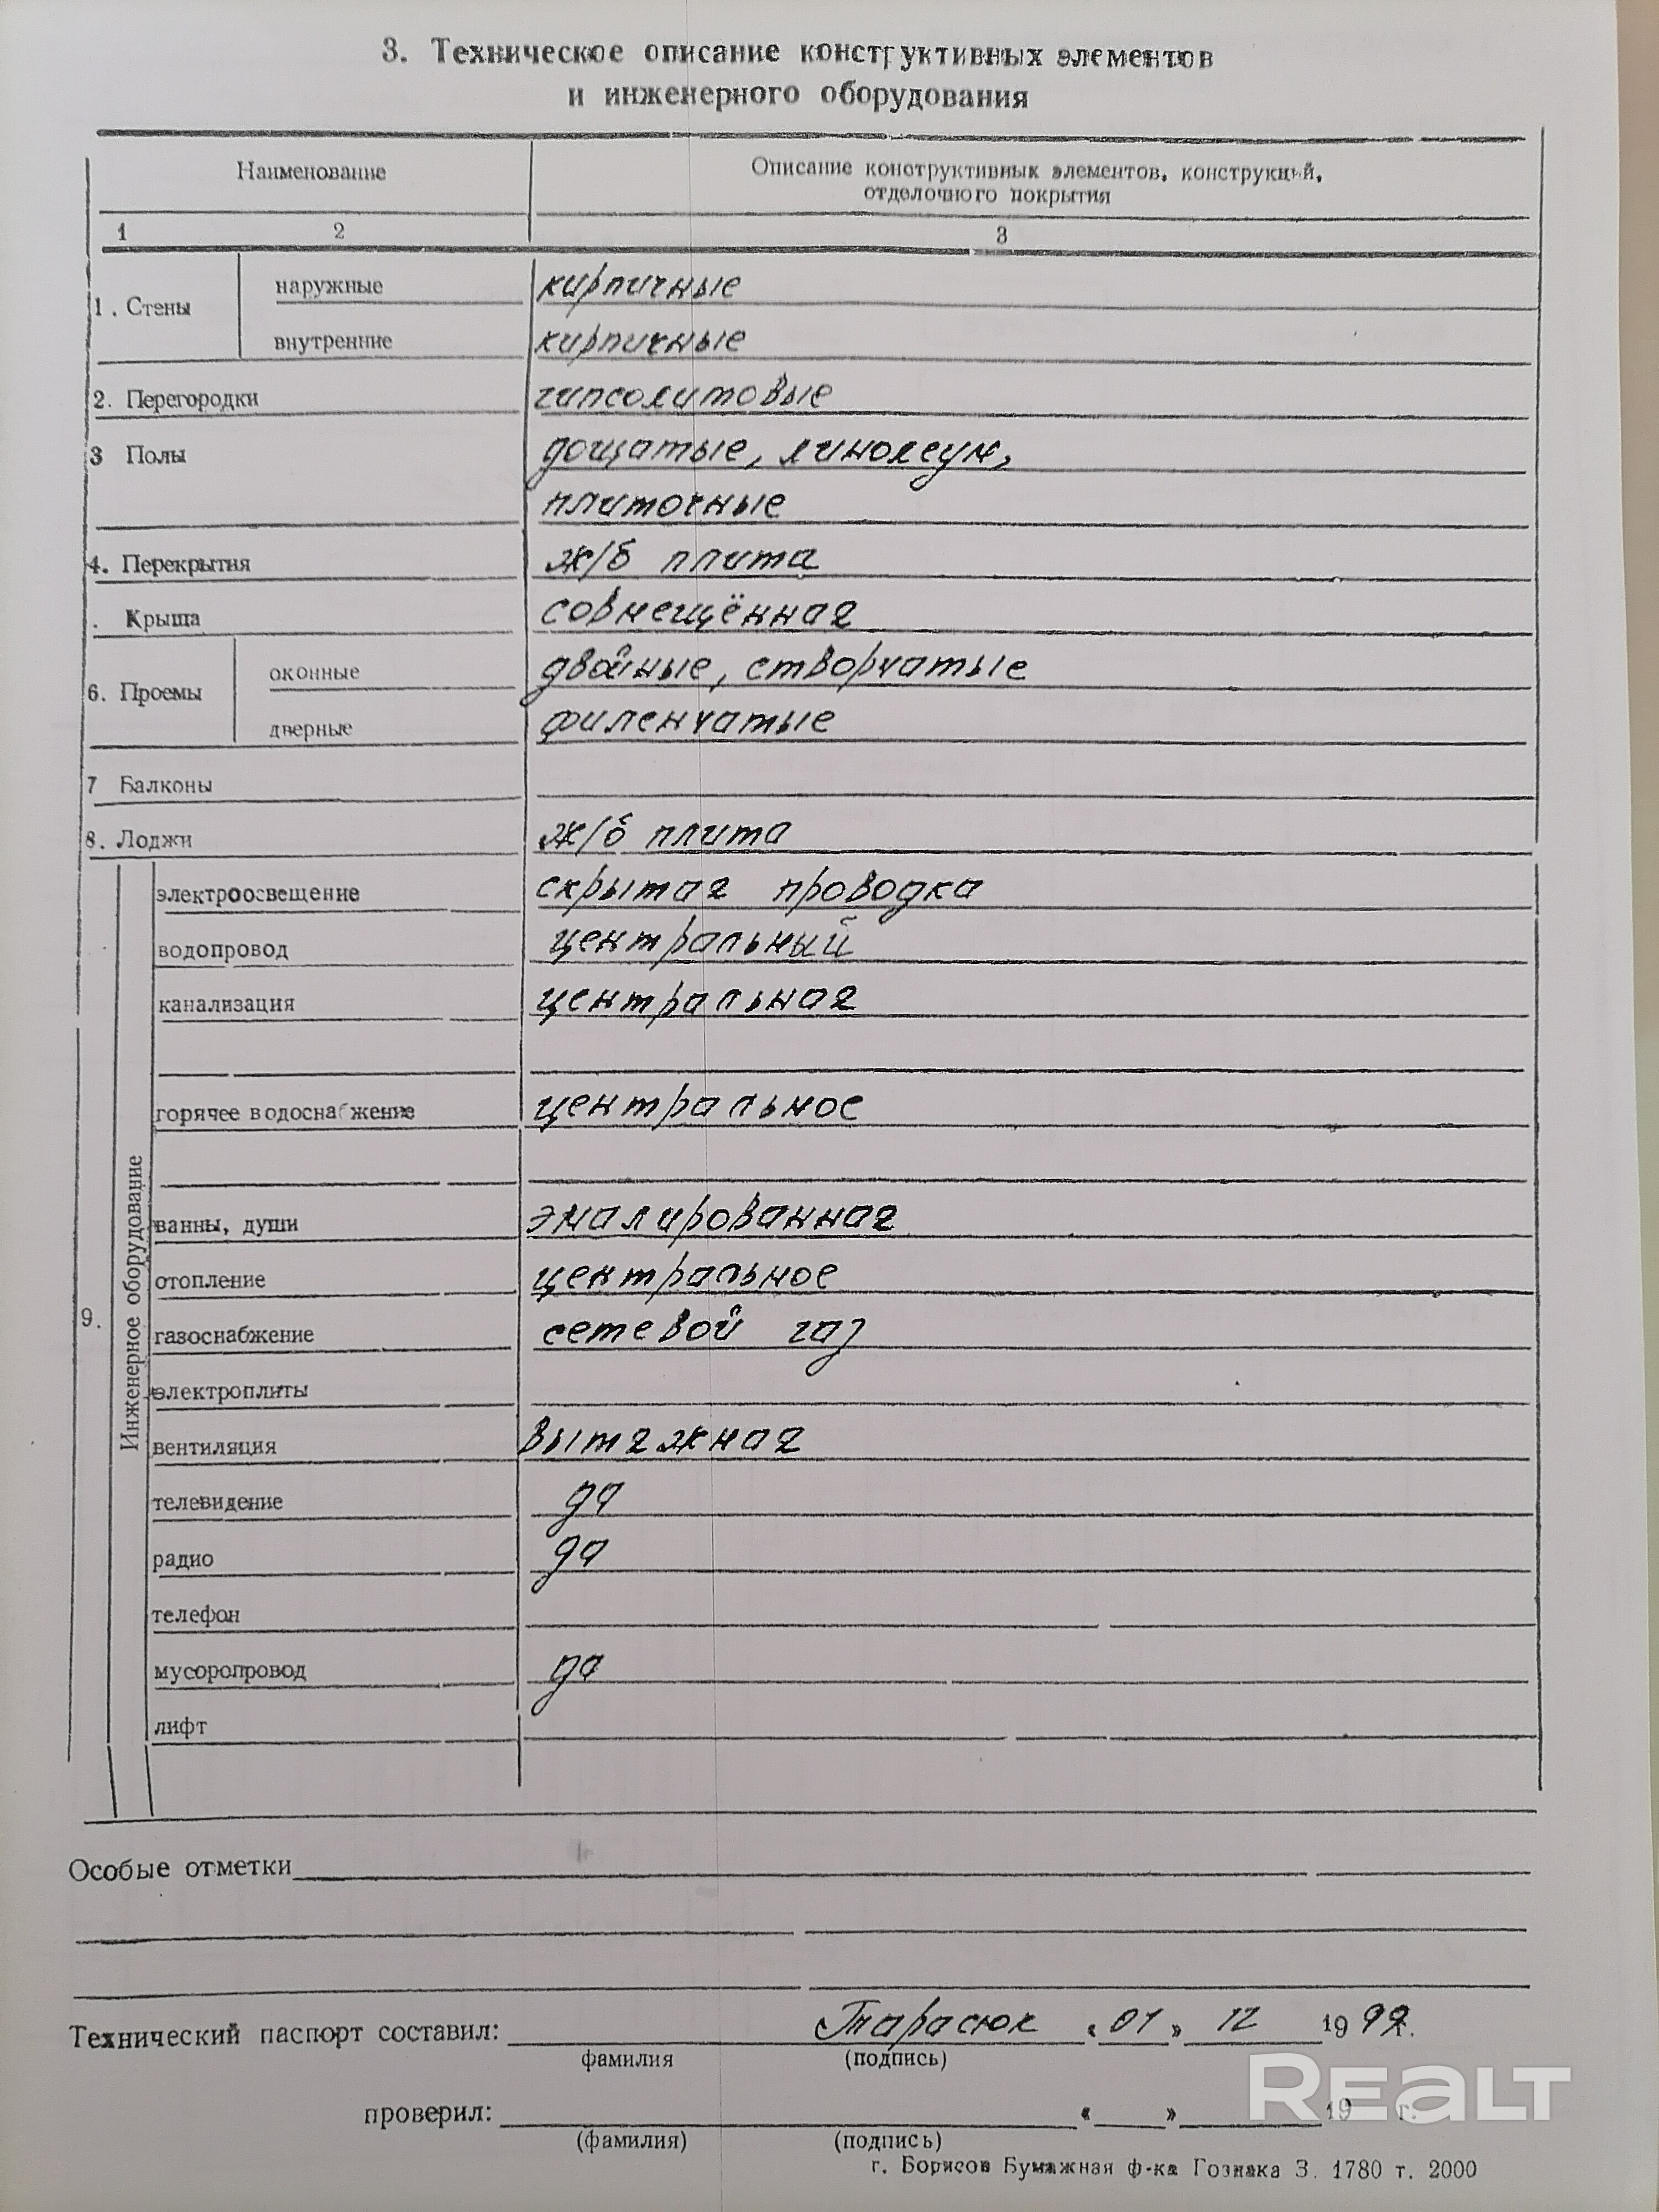 3. Техническое описание конструктивных элементов
и инженерного оборудования
Наименование
Описание конструктивных элементов, конструкций,
отделочного покрытия
1 2 3
1. Стены наружные кирпичные
внутренние кирпичные
2. Перегородки гипсолитовые
3 Полы дощатые, линолеум,
плиточные
4. Перекрытия ж/б плита
. Крыща совмещённая
6. Проемы оконные двойные, створчатые
дверные филенчатые
7 Балконы
8. Лоджи ж/б плита
9. Инженерное оборудование
электроосвещение скрытая проводка
водопровод центральный
канализация центральная
горячее водоснабжение центральное
ванны, души эмалированная
отопление центральное
газоснабжение сетевой газ
электроплиты
вентиляция вытяжная
телевидение да
радио да
телефон
мусоропровод да
лифт
Особые отметки
Технический паспорт составил: Тарасюк « 01 » 12 1999г.
фамилия (подпись)
проверил: « » 19 г.
(фамилия) (подпись)
г. Борисов Бумажная ф-ка Гознака З. 1780 т. 2000
REALT